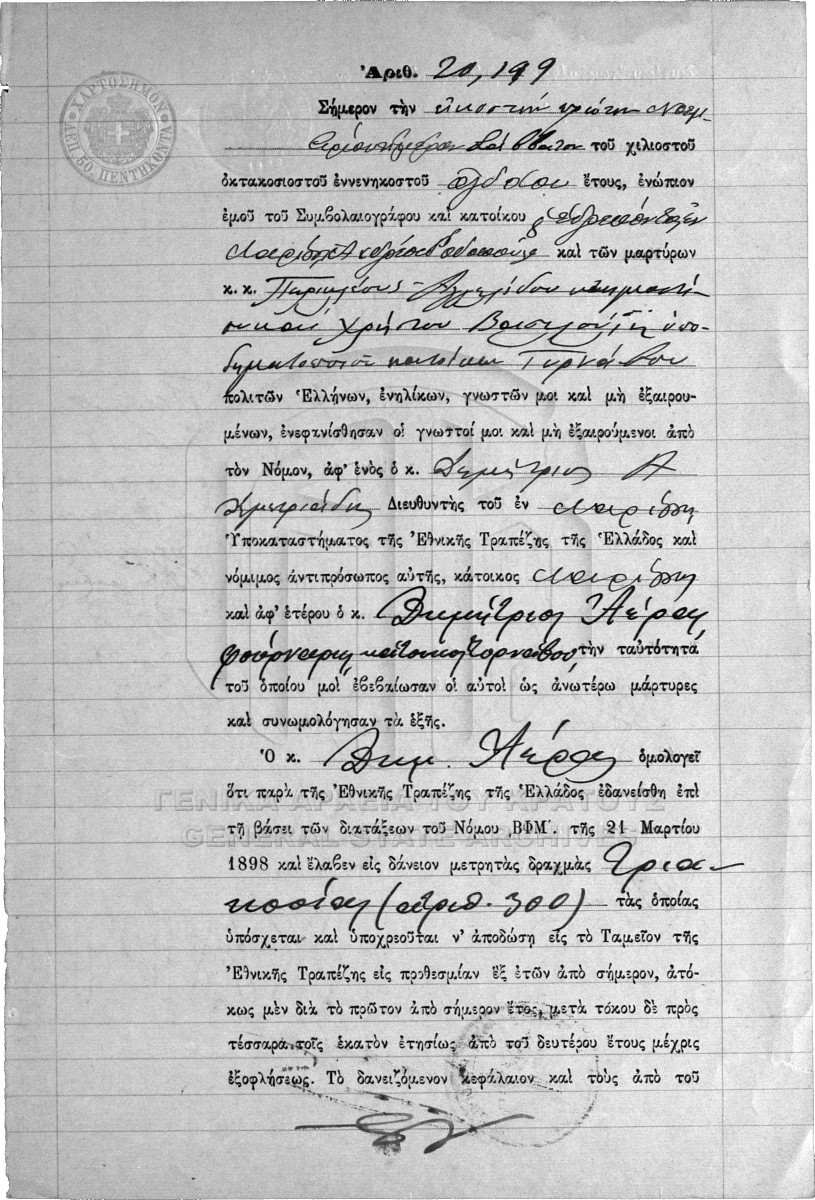 ΧΑΡΤΟΣΗΜΟΝ
ΛΕΠ. 50 ΠΕΝΤΗΚΟΝΤΑ
Ἀριθ. 20,199
Σήμερον τὴν εἰκοστὴν πρώτην Νοεμ-
βρίου ἡμέραν Σάββατον τοῦ χιλιοστοῦ
ὀκτακοσιοστοῦ ἐννενηκοστοῦ ὀγδόου ἔτους, ἐνώπιον
ἐμοῦ τοῦ Συμβολαιογράφου καὶ κατοίκου
καὶ τῶν μαρτύρων
κ. κ. Περικλέους κτηματι-
Χρήστου ὑπο-
δηματοποιοῦ κατοίκων Τυρνάβου
πολιτῶν Ἑλλήνων, ἐνηλίκων, γνωστῶν μοι καὶ μὴ ἐξαιρου-
μένων, ἐνεφανίσθησαν οἱ γνωστοί μοι καὶ μὴ ἐξαιρούμενοι ἀπὸ
τὸν Νόμον, ἀφ' ἑνὸς ὁ κ. Δημήτριος Α
Δημητριάδης Διευθυντὴς τοῦ ἐν Λαρίσῃ
Ὑποκαταστήματος τῆς Ἐθνικῆς Τραπέζης τῆς Ἑλλάδος καὶ
νόμιμος ἀντιπρόσωπος αὐτῆς, κάτοικος Λαρίσης
καὶ ἀφ' ἑτέρου ὁ κ. Δημήτριος
φούρναρης κάτοικος Τυρνάβου, τὴν ταυτότητα
τοῦ ὁποίου μοὶ ἐβεβαίωσαν οἱ αὐτοὶ ὡς ἀνωτέρω μάρτυρες
καὶ συνωμολόγησαν τὰ ἑξῆς.
Ὁ κ. Δημ. ὁμολογεῖ
ὅτι παρὰ τῆς Ἐθνικῆς Τραπέζης τῆς Ἑλλάδος ἐδανείσθη ἐπὶ
ΓΕΝΙΚΑ ΑΡΧΕΙΑ ΤΟΥ ΚΡΑΤΟΥΣ
τῇ βάσει τῶν διατάξεων τοῦ Νόμου ͵ΒΦΜ΄. τῆς 21 Μαρτίου
GENERAL STATE ARCHIVES
1898 καὶ ἔλαβεν εἰς δάνειον μετρητὰς δραχμὰς τρια-
κοσίας (ἀριθ. 300) τὰς ὁποίας
ὑπόσχεται καὶ ὑποχρεοῦται ν' ἀποδώσῃ εἰς τὸ Ταμεῖον τῆς
Ἐθνικῆς Τραπέζης εἰς προθεσμίαν ἓξ ἐτῶν ἀπὸ σήμερον, ἀτό-
κως μὲν διὰ τὸ πρῶτον ἀπὸ σήμερον ἔτος, μετὰ τόκου δὲ πρὸς
τέσσαρα τοῖς ἑκατὸν ἐτησίως ἀπὸ τοῦ δευτέρου ἔτους μέχρις
ἐξοφλήσεως. Τὸ δανειζόμενον κεφάλαιον καὶ τοὺς ἀπὸ τοῦ